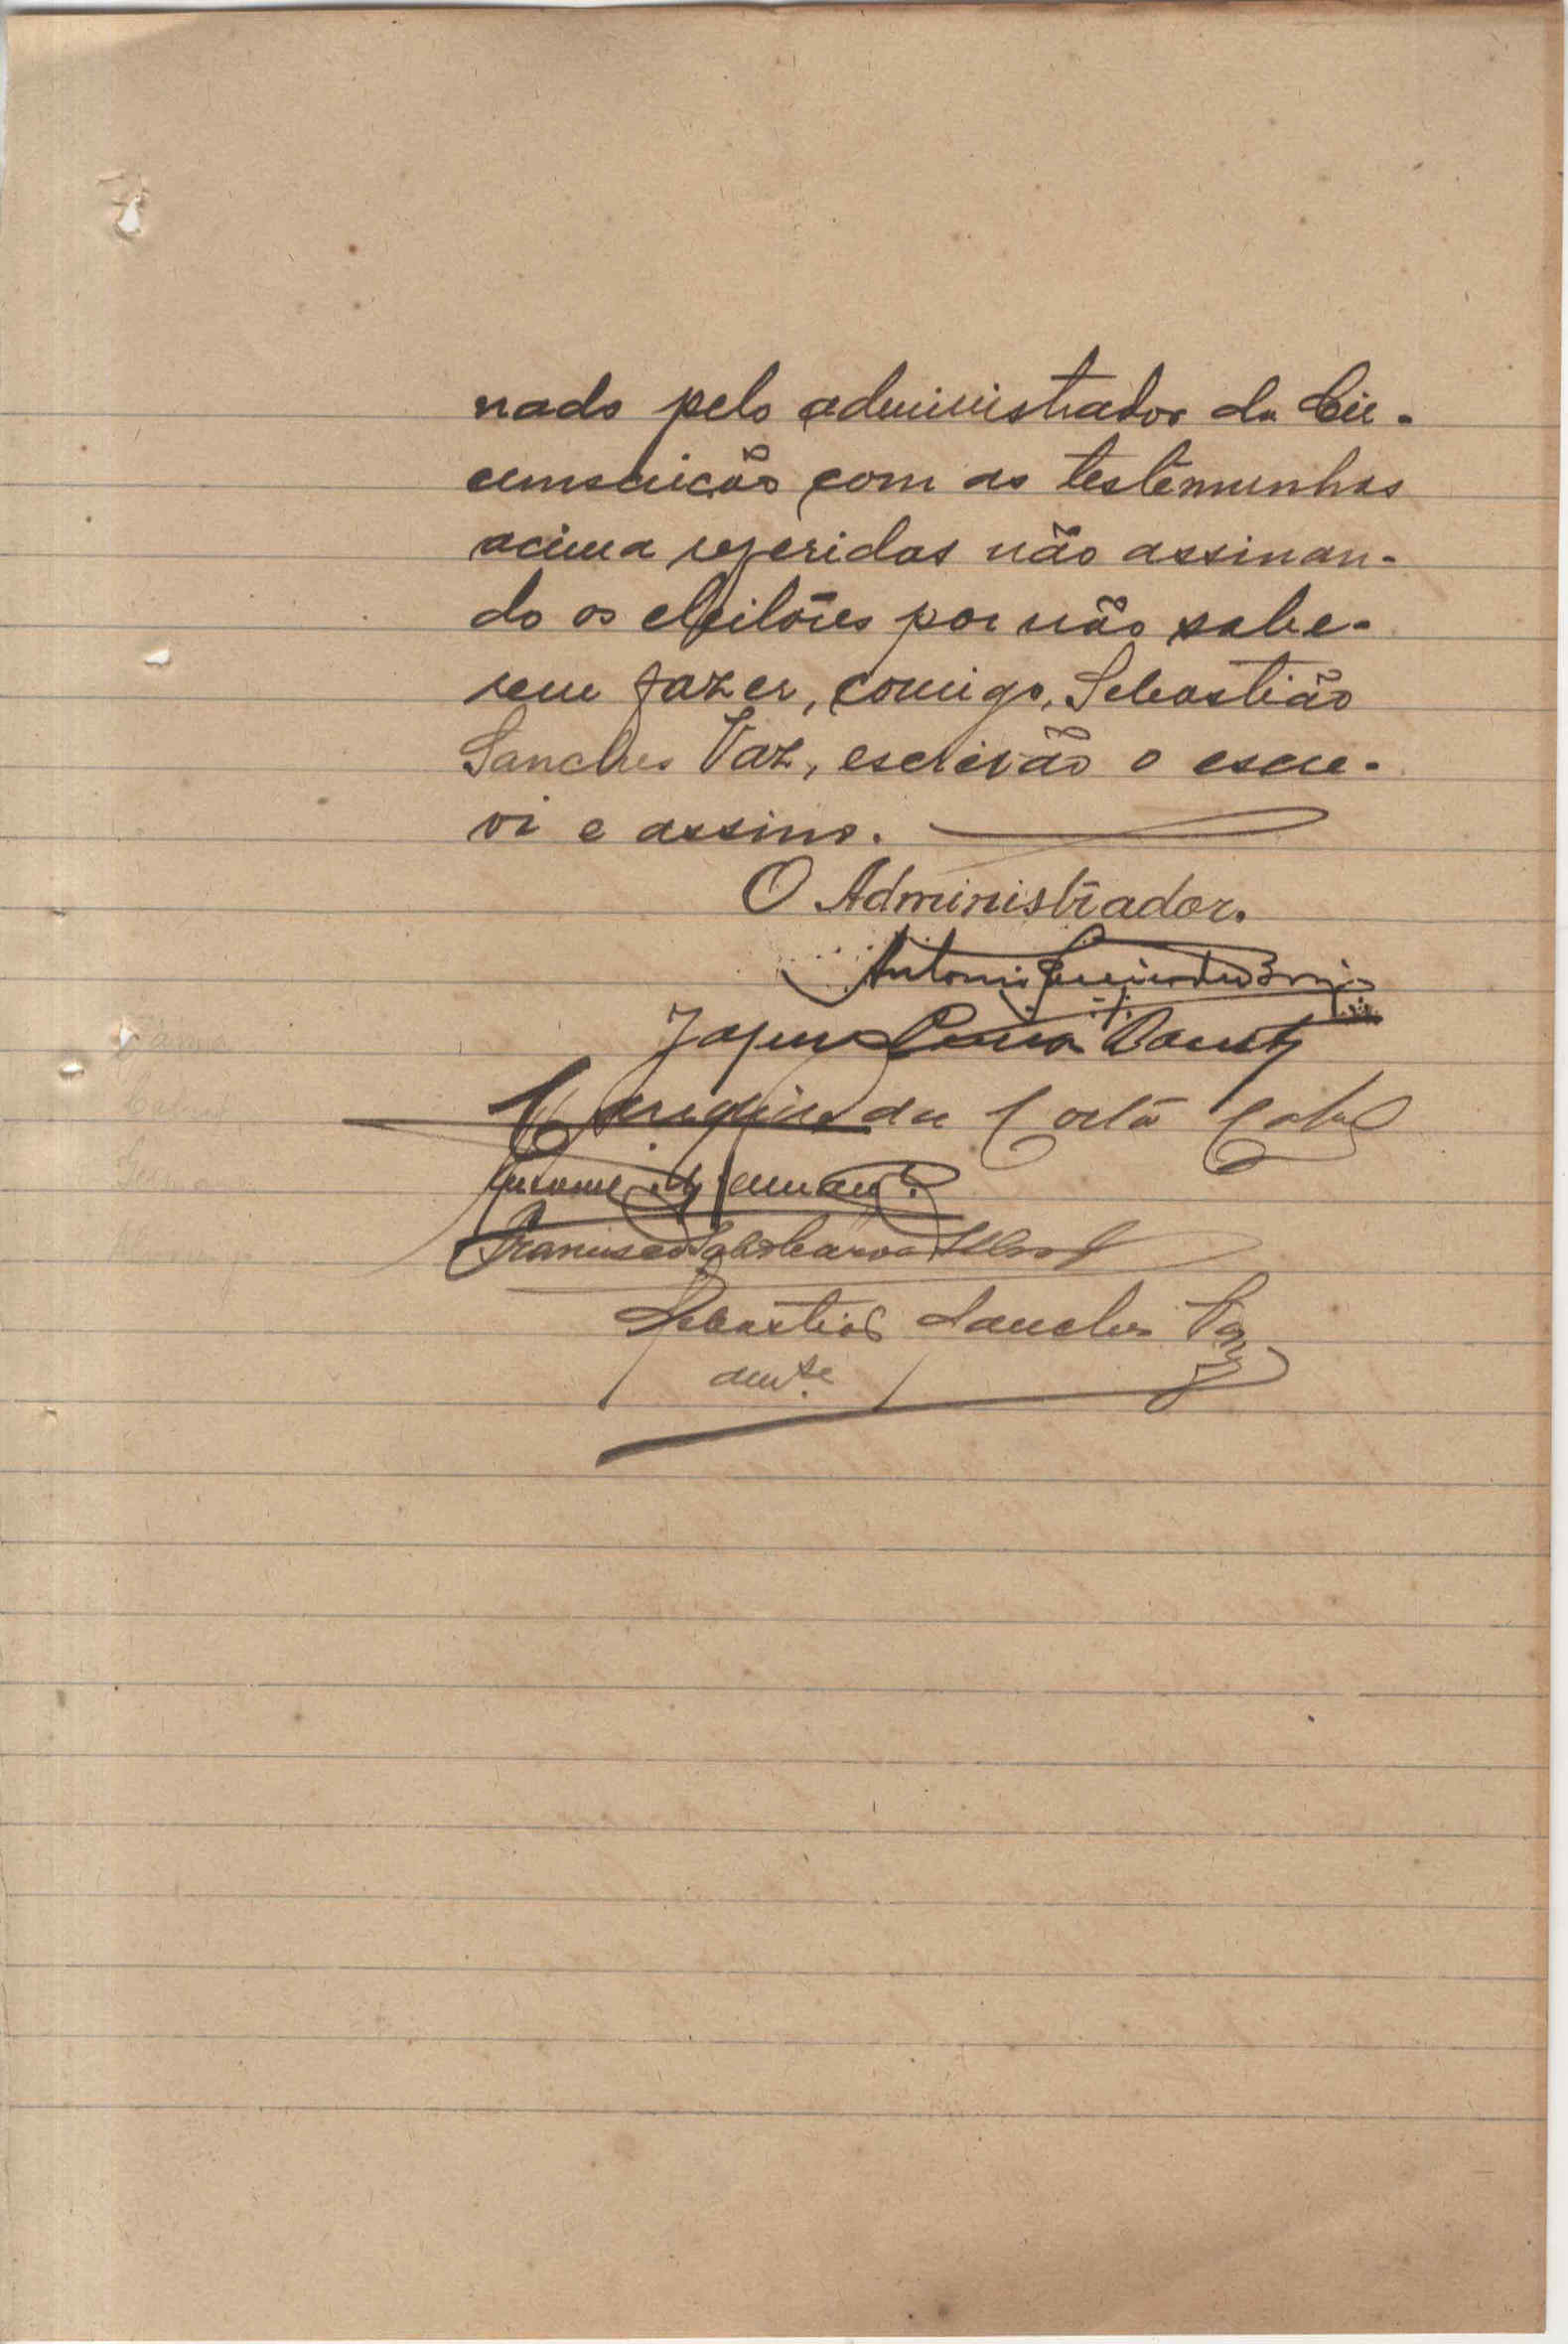 nado pelo administrador da Cir-
cumscrição com as testemunhas
acima referidas não assinan-
do os eleitores por não sabe-
rem fazer, comigo, Sebastião
Sanches Vaz, escrivão o escre-
vi e assino.
O Administrador.
Antonio
da Costa Cabral
Francisco
Sebastião Sanches Vaz